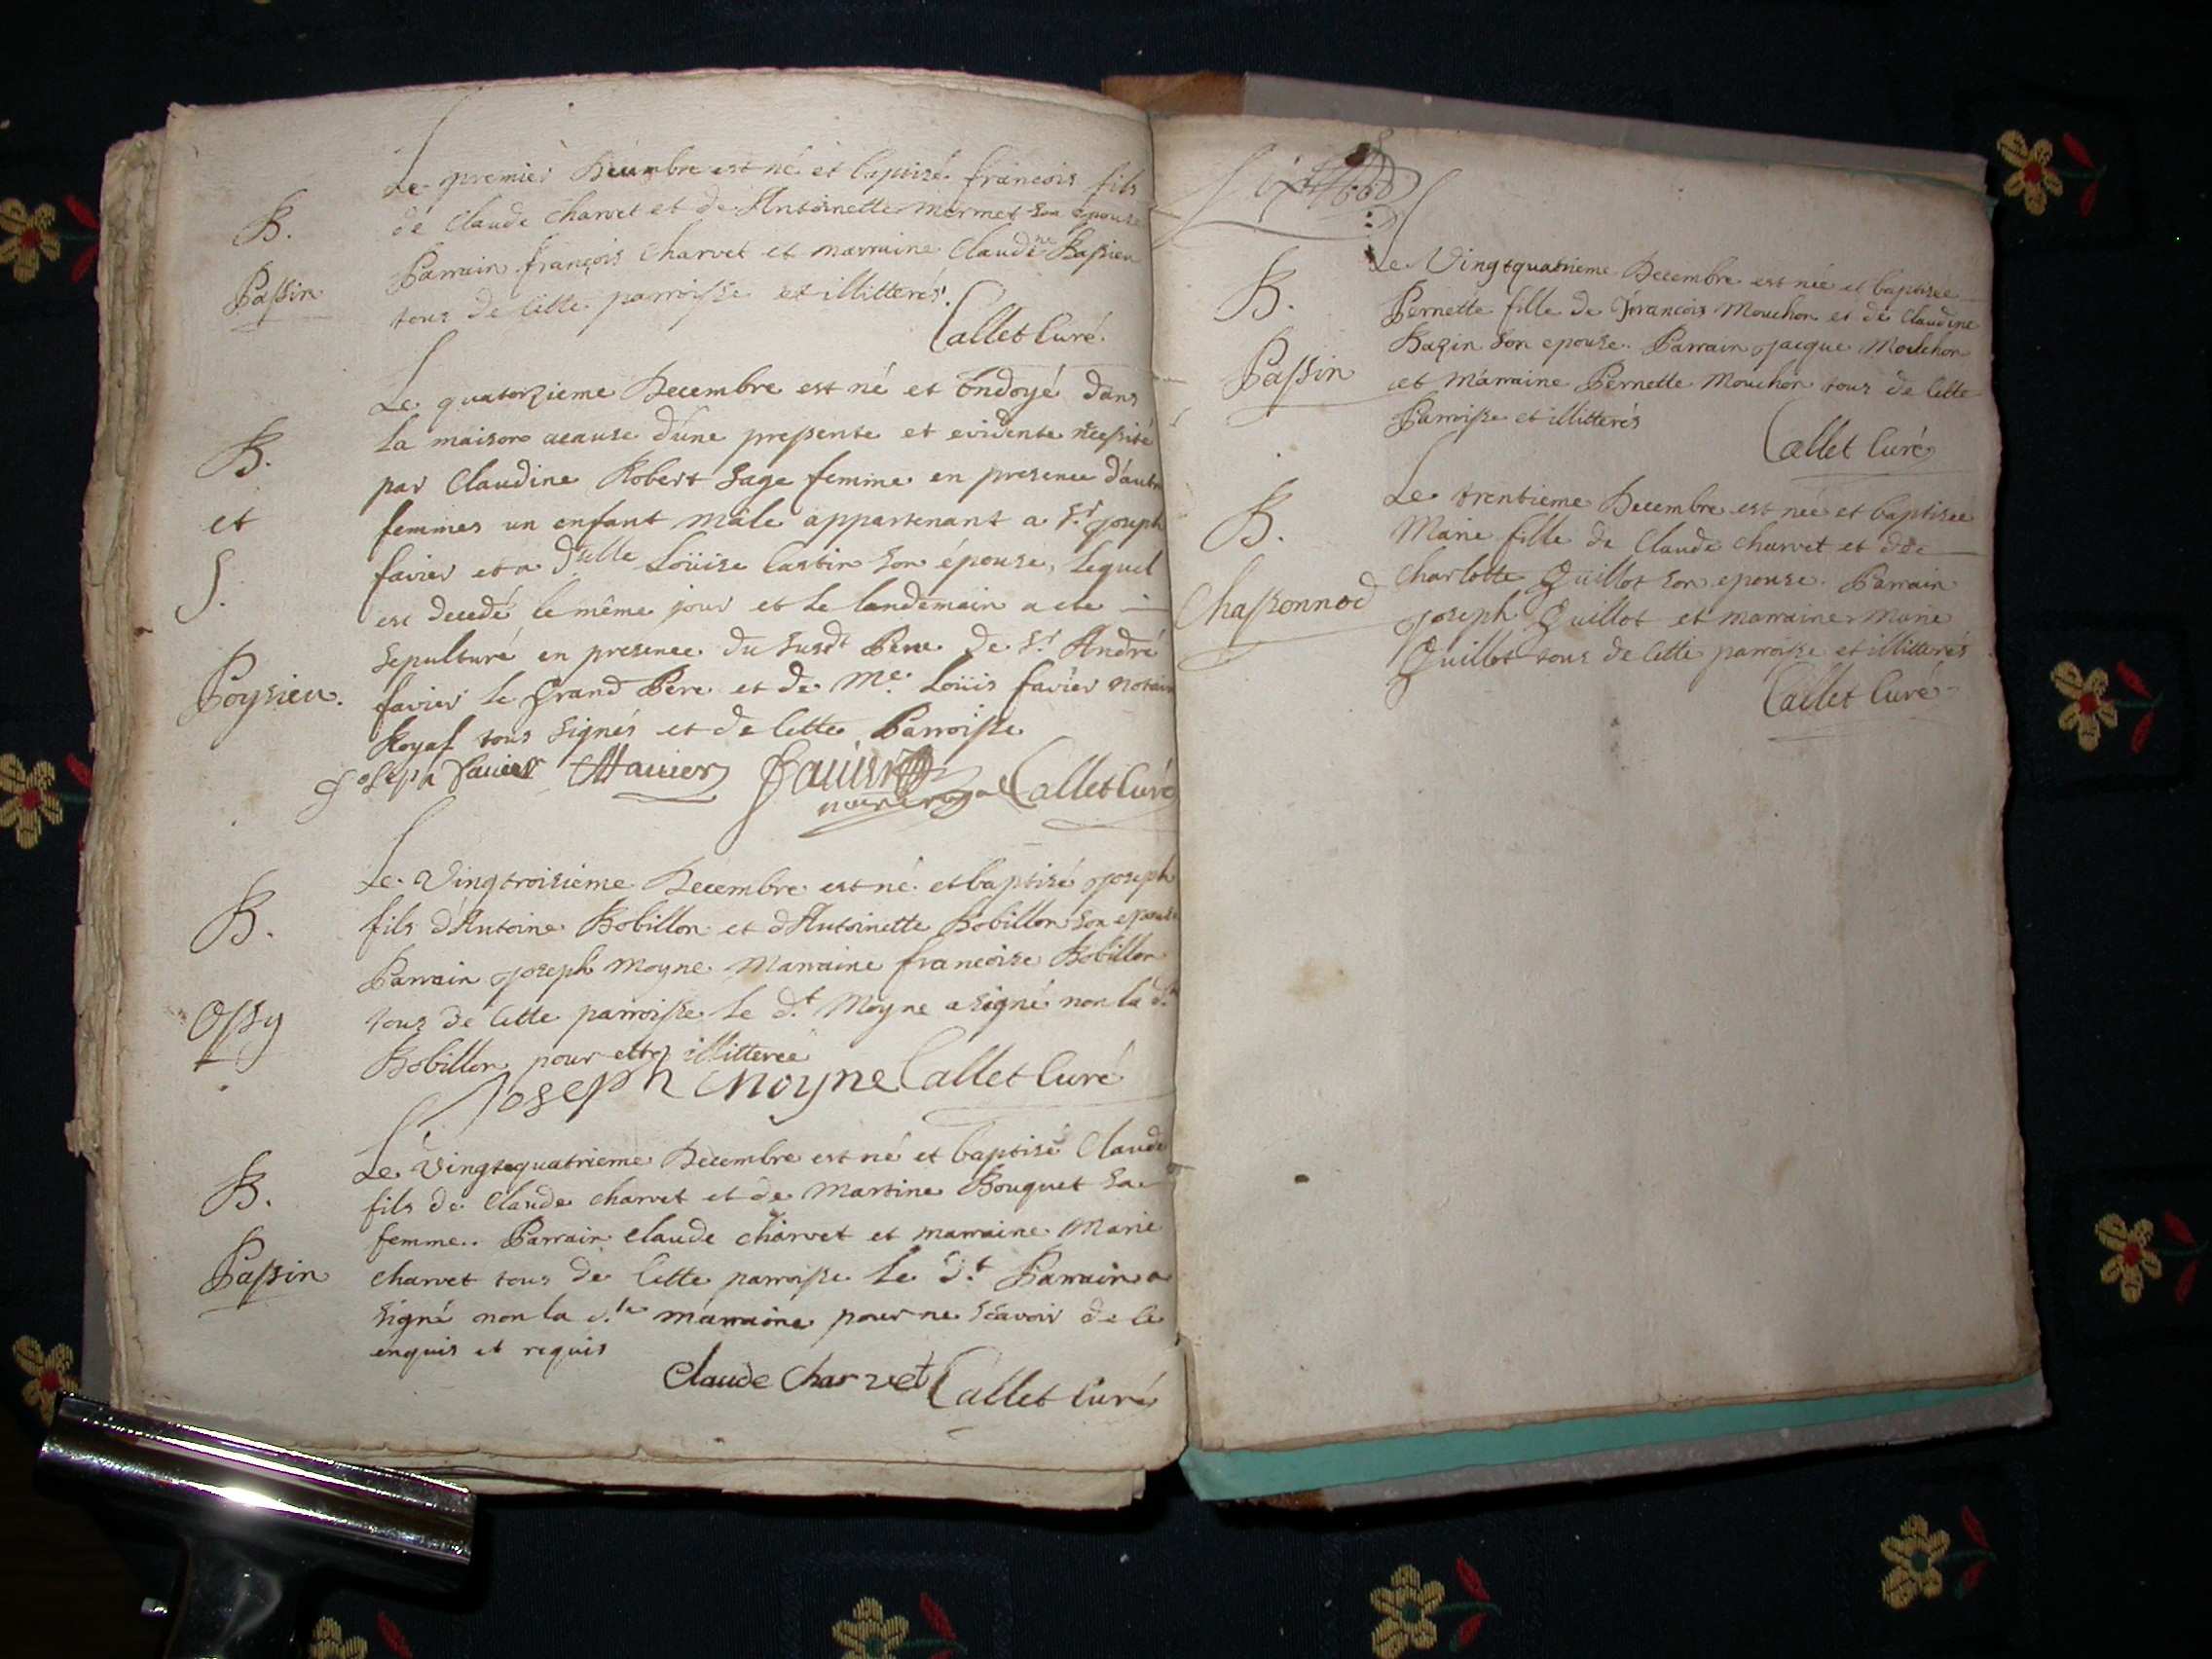 Le premier Decembre est né et baptisé francois fils
B.
de Claude Charvet et de Antoinette Mermet son épouse
Parrain françois Charvet et marraine Claudine
Passin
tous de Cette parroisse et illitterés.
Callet Curé.
Le quatorzieme Decembre est né et Ondoyé dans
B.
la maison acause d'une pressente et evidente necessité
par Claudine Robert Sage femme en presence d'autre
et
femmes un enfant mâle appartenant a Sr Joseph
S.
favier et a Dselle Loüise Castin son épouse, lequel
est decedé le même jour et le landemain a ete
Sepulturé en presence du Susdt Pere de Sr André
Poysieu.
favier le Grand Pere et de Me Loüis favier notaire
Royal tous signés et de Cette Parroisse
Joseph Favier Favier Callet Curé
Le Vingtroisieme Decembre est né et baptisé Joseph
B.
fils d'Antoine Bobillon et d'Antoinette Bobillon son epouse
Parrain Joseph Moyne Marraine francoise Bobillon
Ossy
tous de Cette parroisse le dt Moyne a signé non la de
Bobillon pour etre illitteree
Joseph Moyne Callet Curé
Le Vingtequatrieme Decembre est né et baptisé Claude
B.
fils de Claude Charvet et de Martine Bouquet Sa
femme. Parrain Claude Charvet et marraine Marie
Passin
Charvet tous de Cette parroisse le dt Parrain a
signé non la dte marraine pour ne Scavoir de ce
enquis et requis
Claude Charvet Callet Curé
Le Vingtquatrieme Decembre est née et baptisee
B.
Pernette fille de Francois Mouchon et de Claudine
Bazin son epouse. Parrain Jacque Mouchon
Passin
et Marraine Pernette Mouchon tous de Cette
Parroisse et illitterés
Callet Curé
Le trentieme Decembre est née et baptisee
B.
Marie fille de Claude Charvet et de
Charlotte Quillot son epouse. Parrain
Chassonnod
Joseph Quillot et marraine Marie
Quillot tous de Cette parroisse et illitterés
Callet Curé